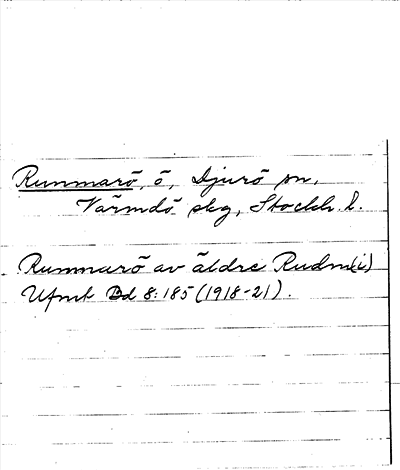 Runmarö, ö, Djurö sn,
Värmdö skg, Stockh. l.
Runmarö av äldre Rudm(i)
Ufmt Bd 8:185 (1918-21).